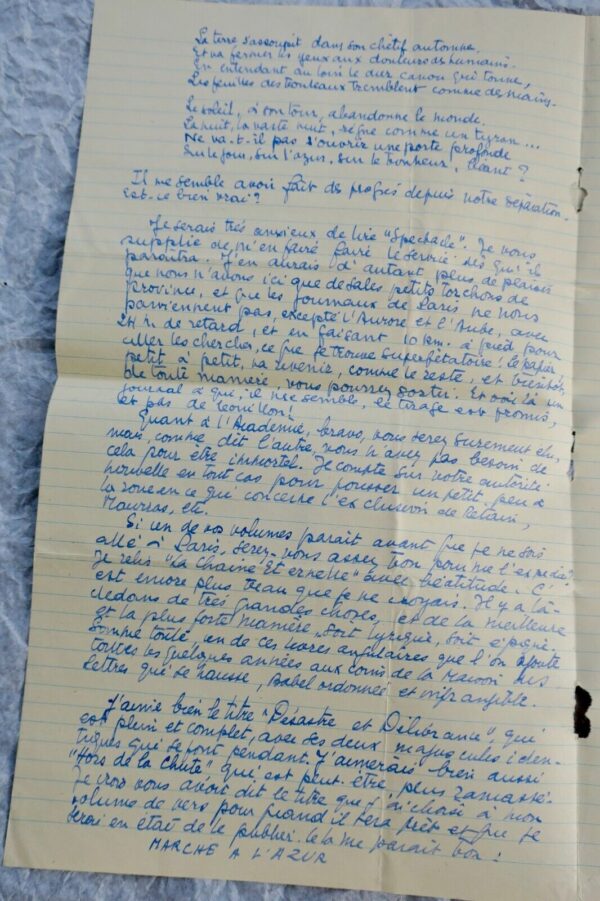 La terre s'assoupit dans son chétif automne.
Et va fermer les yeux aux douleurs des humains.
En entendant au loin le dur canon qui tonne,
Les feuilles des rouleaux tremblent comme des mains.
Le soleil, à son tour, abandonne le monde.
La nuit, la vaste nuit, règne comme un tyran...
Ne va-t-il pas s'ouvrir une porte profonde
Sur le jour, sur l'azur, sur le bonheur, céant ?
Il me semble avoir fait des progrès depuis notre séparation.
Est-ce bien vrai ?
Je serais très anxieux de lire "Spectacle". Je vous
supplie de m'en faire faire le service dès qu'il
paraîtra. J'en aurais d'autant plus de plaisir
que nous n'avons ici que de sales petits torchons de
province, et que les journaux de Paris ne nous
parviennent pas, excepté l'Aurore et l'Aube, avec
24 h. de retard, et en faisant 10 km. à pied pour
aller les chercher, ce que je trouve superfétatoire ! Le papier
petit à petit, va revenir, comme le reste, et bientôt,
de toute manière, vous pourrez sortir. Et voilà un
journal à qui, il me semble, le tirage est promis,
et pas de bouillon !
Quant à l'Académie, bravo, vous serez sûrement élu,
mais, comme dit l'autre, vous n'avez pas besoin de
cela pour être immortel. Je compte sur votre autorité
nouvelle en tout cas pour pousser un petit peu à
la roue en ce qui concerne l'exclusion de Pétain,
Maurras, etc.
Si un de vos volumes paraît avant que je ne sois
allé à Paris, serez-vous assez bon pour me l'expédier ?
Je relis "La Chaîne Eternelle" avec béatitude. C'
est encore plus beau que je ne croyais. Il y a là-
dedans de très grandes choses, et de la meilleure
et la plus forte manière, soit lyrique, soit épique.
Somme toute, un de ces livres angulaires que l'on ajoute
toutes les quelques années aux coins de la Maison des
Lettres qui se hausse, Babel ordonnée et infrangible.
J'aime bien le titre "Désastre et Délivrance", qui
est plein et complet, avec ses deux majuscules iden-
tiques qui se font pendant. J'aimerais bien aussi
"Hors de la Chute" qui est peut-être plus ramassé.
Je crois vous avoir dit le titre que j'ai choisi à mon
volume de vers pour quand il sera prêt et que je
serai en état de le publier. Cela me paraît bon :
MARCHE A L'AZUR